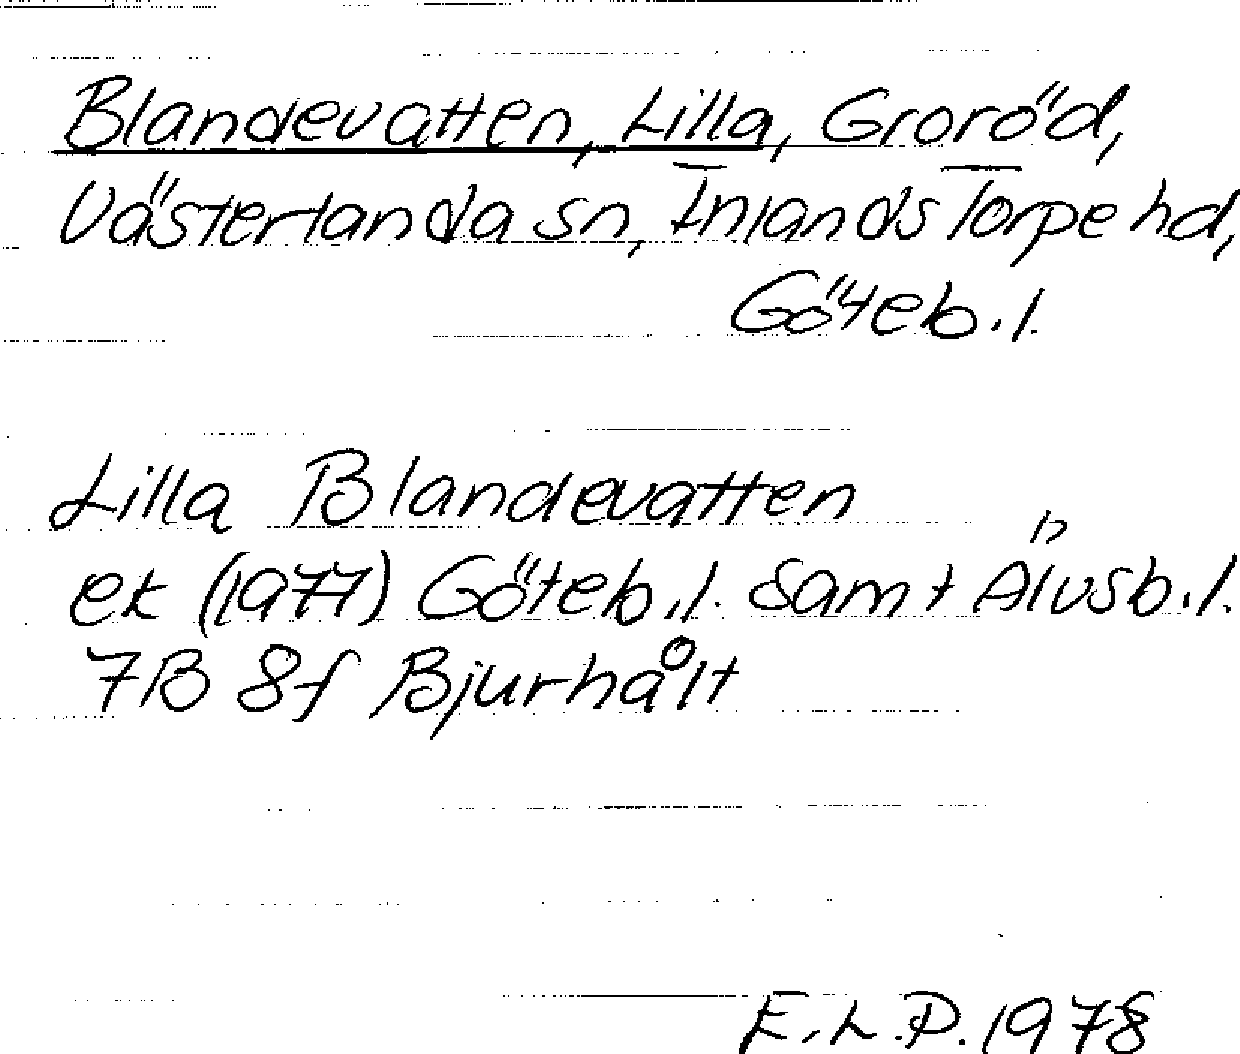 Blandevatten, Lilla, Groröd,
Västerlanda sn, Inlands Torpe hd,
Göteb.l.
Lilla Blandevatten
ek (1977) Göteb.l. samt Älvsb.l.
7B 8f Bjurhålt
E.L.P. 1978